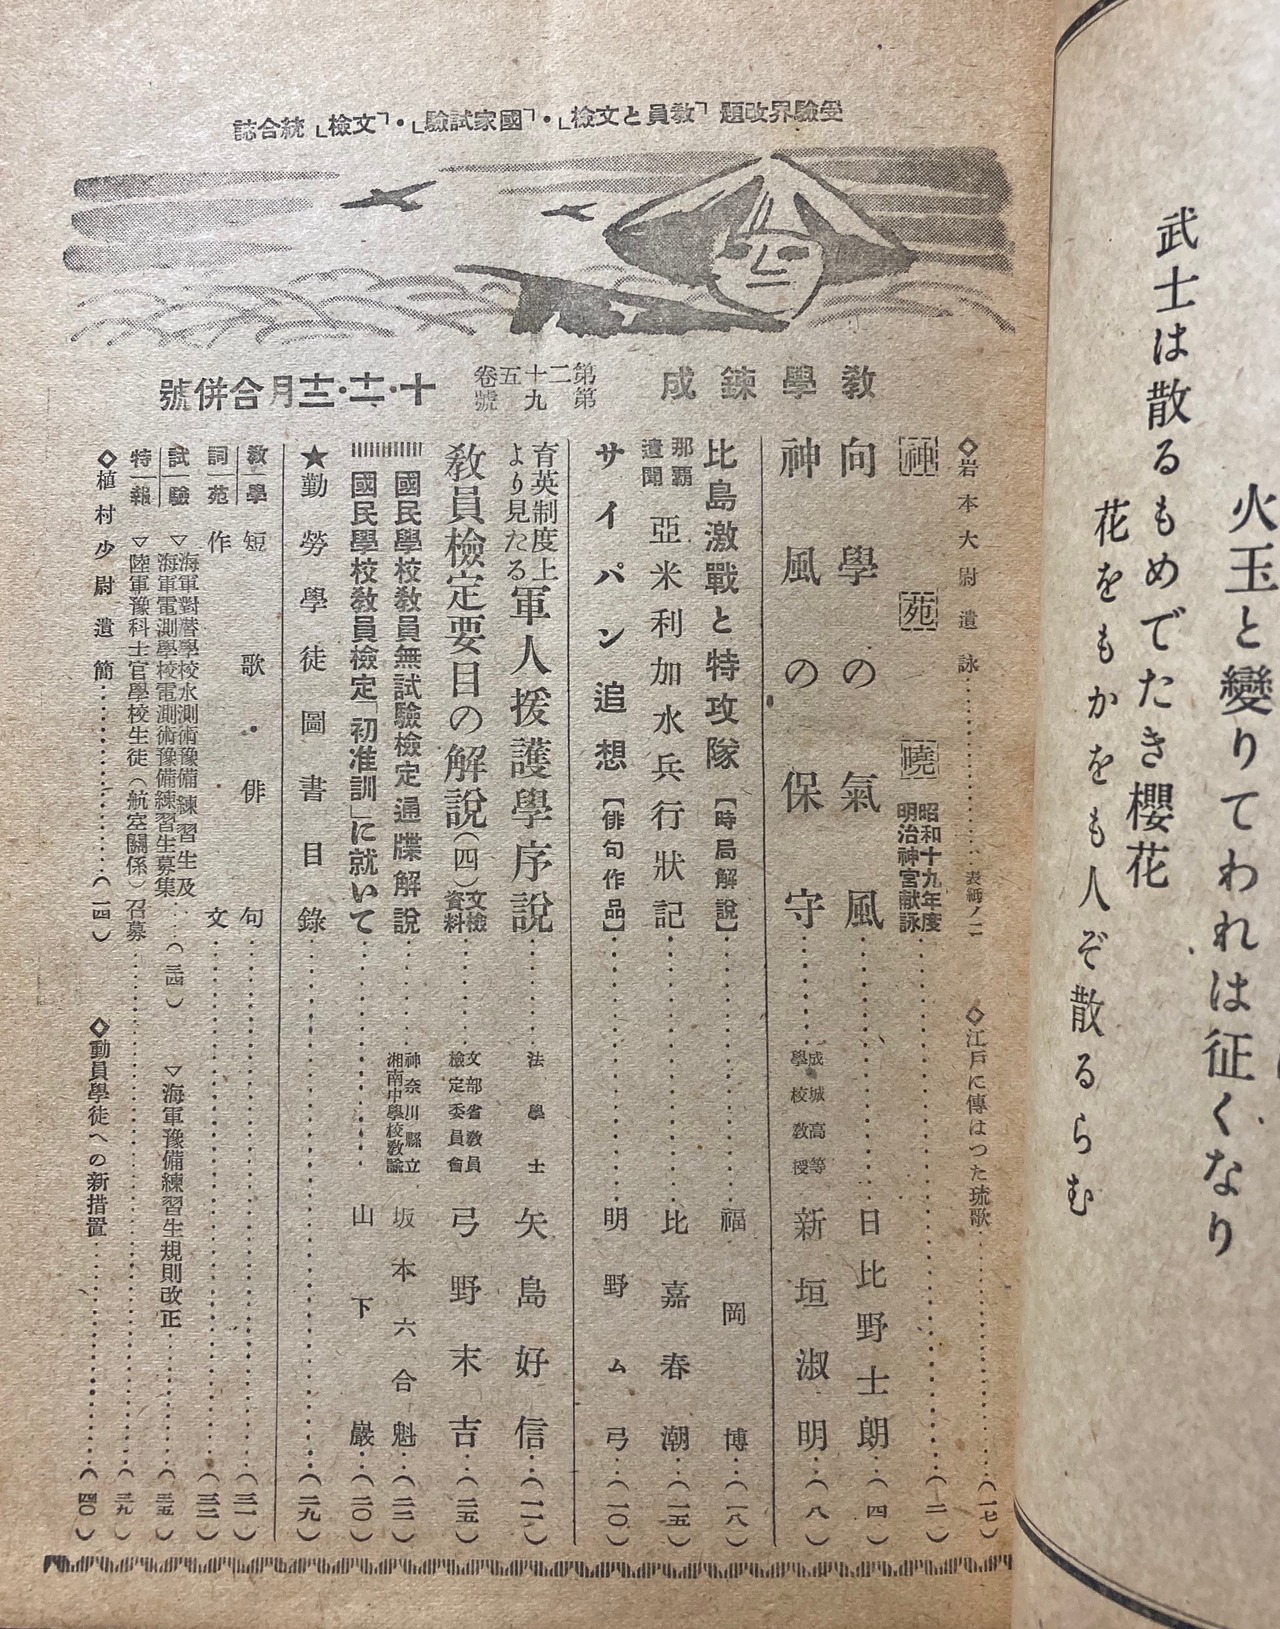 火玉と變りてわれは征くなり
武士は散るもめでたき櫻花
花をもかをも人ぞ散るらむ
受驗界改題「教員と文檢」・「國家試驗」・「文檢」統合誌
教學鍊成
第二十五卷
第九號
十・十一・十二月合併號
◇岩本大尉遺詠……表紙ノ二
◇江戸に傳はつた琉歌……(一七)
神苑曉 昭和十九年度明治神宮献詠……(二)
向學の氣風……日比野士朗…(四)
神風の保守……成城高等學校教授 新垣淑明…(八)
比島激戰と特攻隊【時局解說】……福岡博…(一八)
那覇遺聞 亞米利加水兵行狀記……比嘉春潮…(一五)
サイパン追想【俳句作品】……明野ム弓…(一〇)
育英制度上より見たる軍人援護學序說……法學士 矢島好信…(一一)
教員檢定要目の解說(四)文檢資料……文部省教員檢定委員會 弓野末吉…(二五)
國民學校教員無試驗檢定通牒解說……神奈川縣立湘南中學校教諭 坂本六合魁…(二二)
國民學校教員檢定「初准訓」に就いて……山下巖…(二〇)
★勤勞學徒圖書目錄……(二九)
教學 短歌・俳句……(三一)
詞苑 作文……(三二)
試驗 ▽海軍對潜學校水測術豫備練習生及
海軍電測學校電測術豫備練習生募集…(三四)
▽海軍豫備練習生規則改正……(三五)
特報 ▽陸軍豫科士官學校生徒(航空關係)召募……(三九)
◇植村少尉遺簡……(一四)
◇動員學徒への新措置……(四〇)